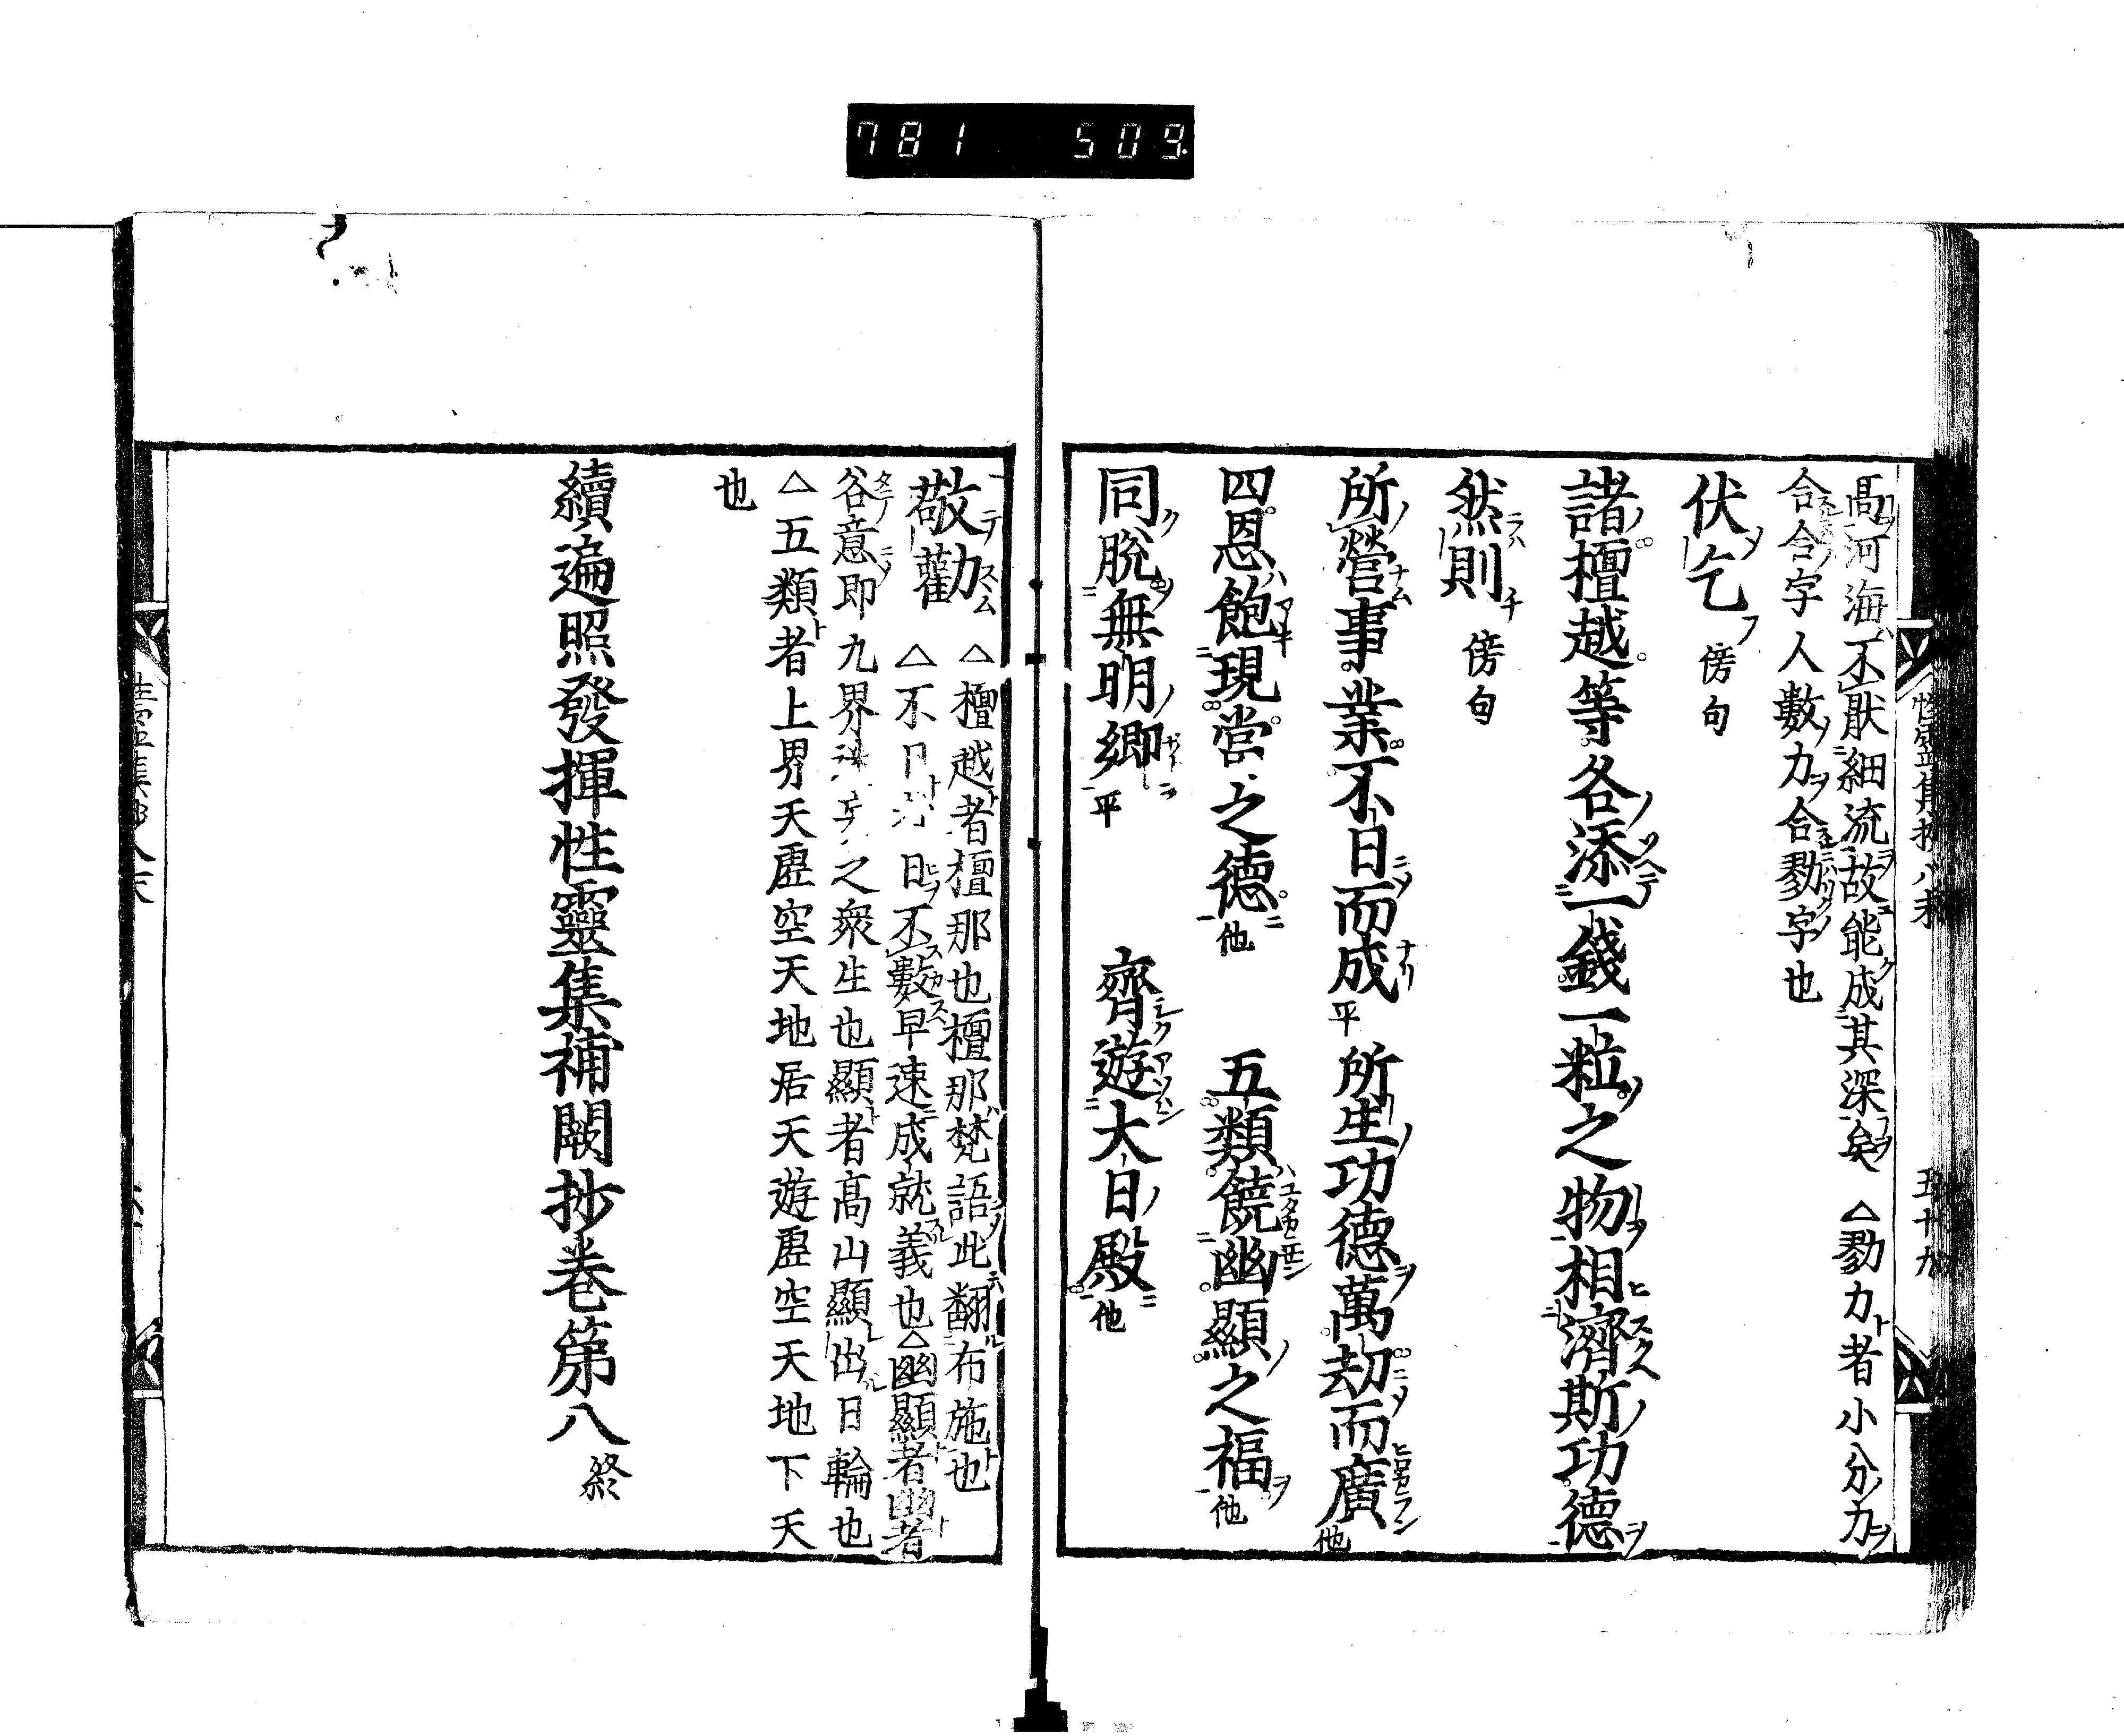 781 509
性靈集抄八末 五十九
高河海不猒細流故能成其深矣 △勠力者小分力
合合字人數力合勠字也
伏乞 傍句
諸檀越等各添一錢一粒之物相濟斯功德
然則 傍句
所營事業不日而成 平 所生功德萬劫而廣 他
四恩飽現當之德 他 五類饒幽顯之福 他
同脫無明鄉 平 齊遊大日殿 他
敬勸 △檀越者檀那也檀那梵語此翻布施也
敬勸 △不日 日不數早速成就義也△幽顯者幽者
谷意即九界 之衆生也顯者高山顯出日輪也
△五類者上界天虛空天地居天遊虛空天地下天
也
續遍照發揮性靈集補闕抄卷第八 終